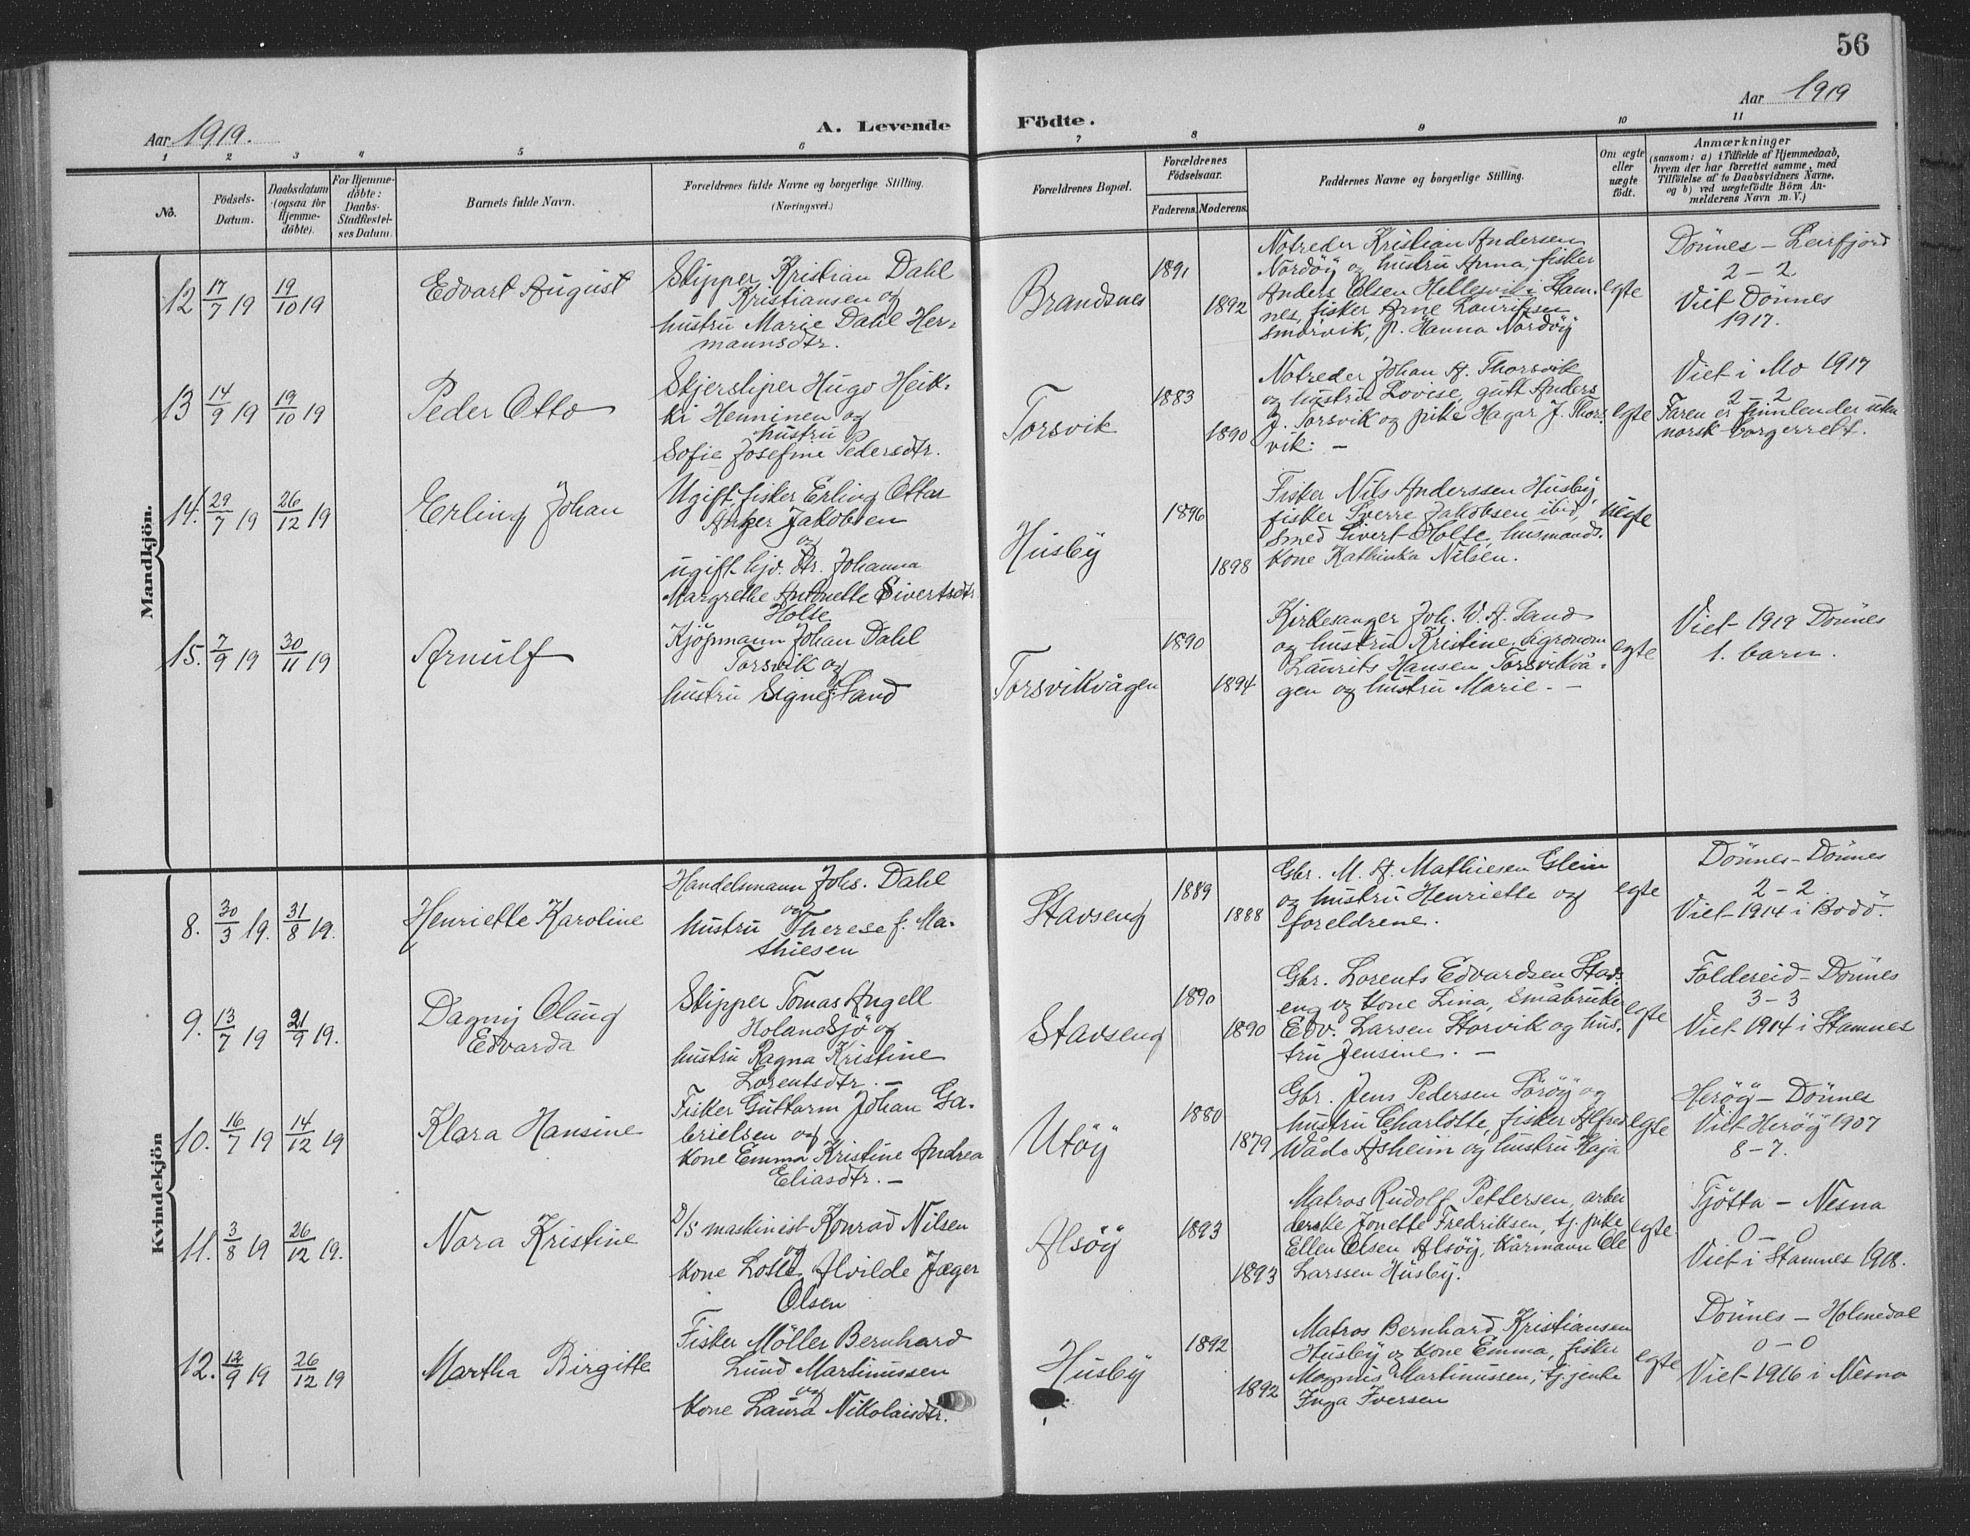 56
Aar 1919.
A. Levende Födte.
Aar 1919
1 2 3 4 5 6 7 8 9 10 11
No.
Födsels-
Datum.
Daabsdatum
(ogsaa for
Hjemme-
döbte).
For Hjemme-
döbte:
Daabs-
Stadfæstel-
ses Datum.
Barnets fulde Navn.
Forældrenes fulde Navne og borgerlige Stilling.
(Næringsvei.)
Forældrenes Bopæl.
Forældrenes
Födselsaar.
Faderens. Moderens.
Faddernes Navne og borgerlige Stilling.
Om ægte
eller
uægte
födt.
Anmærkninger
(saasom: a) i Tilfælde af Hjemmedaab,
hvem der har forrettet samme, med
Tilföielse af to Daabsvidners Navne,
og b) ved uægtefödte Börn An-
melderens Navn m. V.)
Mandkjön.
12 17/7 19 19/10 19
Edvart August
Skipper Kristian Dahl
Kristiansen og
hustru Marie Dahl Her-
mannsdtr.
Brandsnes
1891
1892
Notreder Kristian Andersen
Nordöy og hustru Anna, fisker
Anders Olsen Hellesvik i Stam-
nes, fisker Arne Lauritsen
Smörvik, p. Hanna Nordöy
egte
Dönnes - Leirfjord
2 - 2
Viet Dönnes
1917.
13 14/9 19 19/10 19
Peder Otto
Skjersliper Hugo Heik-
ki Henninen og
hustru
Sofie Josefine Pedersdtr.
Torsvik
1883
1890
Notreder Johan A. Thorsvik
og hustru Lovise, gutt Anders
J. Torsvik og pike Hagar J. Thors-
vik. -
egte
Viet i Mo 1917
2 - 2
Faren er finnlender uten
norsk borgerrett.
14. 29/7 19 26/12 19
Erling Johan
Ugift fisker Erling Ottar
Anker Jakobsen
og
ugift hjv. dtr. Johanna
Margrethe Antonette Sivertsdtr
Holte
Husby
1896
1898
Fisker Nils Anderssen Husby,
fisker Sverre Jakobsen ibid,
Smed Sivert Holte, husmands-
kone Kathinka Nilsen.
uegte
15. 7/9 19 30/11 19
Arnulf
Kjöpmann Johan Dahl
Torsvik og
hustru Signe f. Sand
Torsvikvågen
1890
1894
Kirkesanger Joh. W. A. Sand
og hustru Kristine, agronom
Laurits Hansen Torsvikvå-
gen og hustru Marie. -
egte
Viet 1919 Dönnes
1. barn.
Kvindekjön
8. 30/3 19. 31/8 19.
Henriette Karoline
Handelsmann Johs. Dahl
og
hustru Therese f. Ma-
thiesen
Stavseng
1889
1888
Gbr. M. A. Mathiesen Glein
og hustru Henriette og
foreldrene.
egte
Dönnes - Dönnes
2 - 2.
Viet 1914 i Bodö.
9. 13/7 19 21/9 19.
Dagny Olaug
Edvarda
Skipper Tomas Angell
Holandsjö og
hustru Ragna Kristine
Lorentsdtr. -
Stavseng
1890
1890
Gbr. Lorents Edvardsen Stavs-
eng og kone Lina, småbruker
Edv. Larsen Storvik og hus-
tru Jensine. -
egte
Foldereid - Dönnes
3 - 3
Viet 1914 i Stamnes
10. 16/7 19 14/12 19
Klara Hansine
Fisker Guttorm Johan Ga-
brielsen og
kone Emma Kristine Andrea
Eliasdtr. -
Utöy
1880
1879
Gbr. Jens Pedersen Söröy og
hustru Charlotte, fisker Alfred
Wåde Asheim og hustru Kaja
egte
Heröy - Dönnes
Viet Heröy 1907
8 - 7.
11. 3/8 19 26/12 19.
Nora Kristine
D/S maskinist Konrad Nilsen
og
kone Lotte Alvilde Jæger
Olsen
Alsöy
1893
1893
Matros Rudolf Pettersen, arbei
derske Jonette Fredriksen, tj. pike
Ellen Olsen Alsöy, kårmann Ole
Larssen Husby.
egte
Tjötta - Nesna
0 - 0
Viet i Stamnes 1918.
12. 12/9 19 26/12 19
Martha Birgitte
Fisker Möller Bernhard
Lund Martinussen
og
kone Laura Nikolaisdtr.
Husby
1892
1892
Matros Bernhard Kristiansen
Husby og kone Emma, fisker
Magnus Martinussen, tj. jente
Inga Iversen
egte
Dönnes - Holmedal
0 - 0
Viet 1916 i Nesna